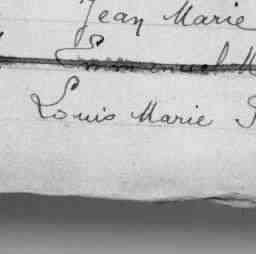 Jean Marie
Emmanuel M
Louis Marie